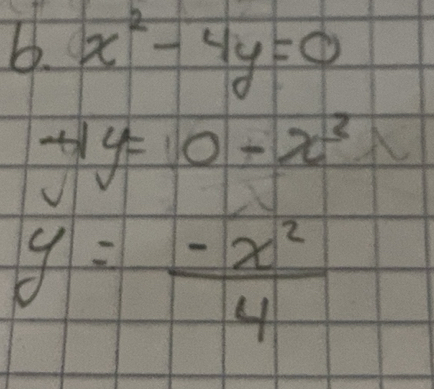 b. x² - 4y = 0
y = 0 - x²
y = -x²/4